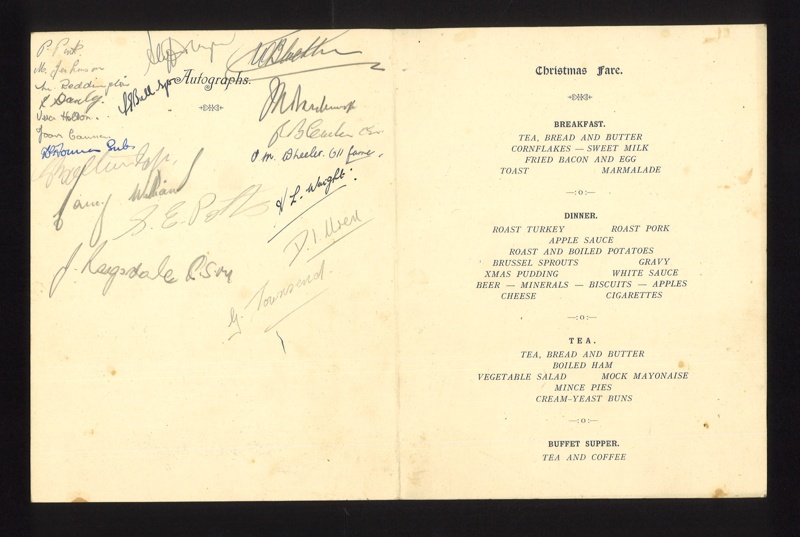 P. Park.
M. Jenkinson
M. Reddington
Vera Holton.
Joan Cannon
Autographs.
J. Bell
O. M. Wheeler. G11 fame.
H L. Wright.
S. E. Potts
D. I.
J. Ragsdale R.S.M
G. Townsend.
Christmas Fare.
BREAKFAST.
TEA, BREAD AND BUTTER
CORNFLAKES — SWEET MILK
FRIED BACON AND EGG
TOAST MARMALADE
—:o:—
DINNER.
ROAST TURKEY ROAST PORK
APPLE SAUCE
ROAST AND BOILED POTATOES
BRUSSEL SPROUTS GRAVY
XMAS PUDDING WHITE SAUCE
BEER — MINERALS — BISCUITS — APPLES
CHEESE CIGARETTES
—:o:—
TEA.
TEA, BREAD AND BUTTER
BOILED HAM
VEGETABLE SALAD MOCK MAYONAISE
MINCE PIES
CREAM-YEAST BUNS
—:o:—
BUFFET SUPPER.
TEA AND COFFEE